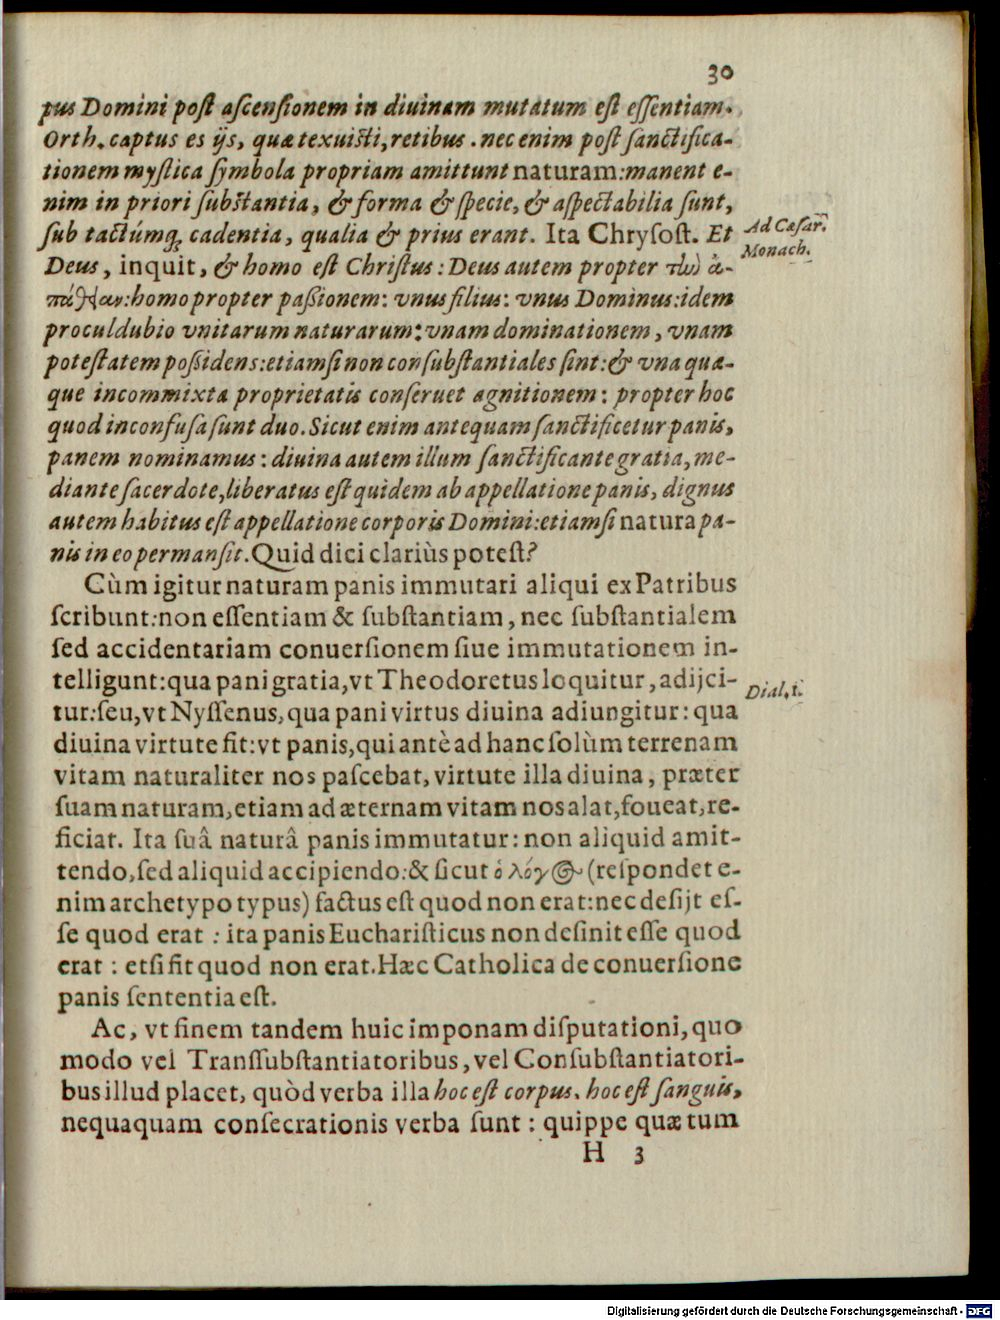 30
pus Domini post ascensionem in diuinam mutatum est essentiam.
Orth. captus es ijs, quæ texuisti, retibus. nec enim post sanctifica-
tionem mystica symbola propriam amittunt naturam: manent e-
nim in priori substantia, & forma & specie, & aspectabilia sunt,
sub tactúmq; cadentia, qualia & prius erant. Ita Chrysost. Et
Ad Cæsar.
Monach.
Deus, inquit, & homo est Christus: Deus autem propter τὴν ἀ-
πάθειαν: homo propter paßionem: vnus filius: vnus Dominus: idem
proculdubio vnitarum naturarum: vnam dominationem, vnam
potestatem poßidens: etiamsi non consubstantiales sint: & vna quæ-
que incommixta proprietatis conseruet agnitionem: propter hoc
quod inconfusa sunt duo. Sicut enim antequam sanctificetur panis,
panem nominamus: diuina autem illum sanctificante gratia, me-
diante sacerdote, liberatus est quidem ab appellatione panis, dignus
autem habitus est appellatione corporis Domini: etiamsi natura pa-
nis in eo permansit. Quid dici clariùs potest?
Cùm igitur naturam panis immutari aliqui ex Patribus
scribunt: non essentiam & substantiam, nec substantialem
sed accidentariam conuersionem siue immutationem in-
telligunt: qua pani gratia, vt Theodoretus loquitur, adijci-
Dial. 1.
tur: seu, vt Nyssenus, qua pani virtus diuina adiungitur: qua
diuina virtute fit: vt panis, qui antè ad hanc solùm terrenam
vitam naturaliter nos pascebat, virtute illa diuina, præter
suam naturam, etiam ad æternam vitam nos alat, foueat, re-
ficiat. Ita suâ naturâ panis immutatur: non aliquid amit-
tendo, sed aliquid accipiendo: & sicut ὁ λόγος (respondet e-
nim archetypo typus) factus est quod non erat: nec desijt es-
se quod erat: ita panis Eucharisticus non desinit esse quod
erat: etsi fit quod non erat. Hæc Catholica de conuersione
panis sententia est.
Ac, vt finem tandem huic imponam disputationi, quo
modo vel Transsubstantiatoribus, vel Consubstantiatori-
bus illud placet, quòd verba illa hoc est corpus. hoc est sanguis,
nequaquam consecrationis verba sunt: quippe quæ tum
H 3
Digitalisierung gefördert durch die Deutsche Forschungsgemeinschaft - DFG